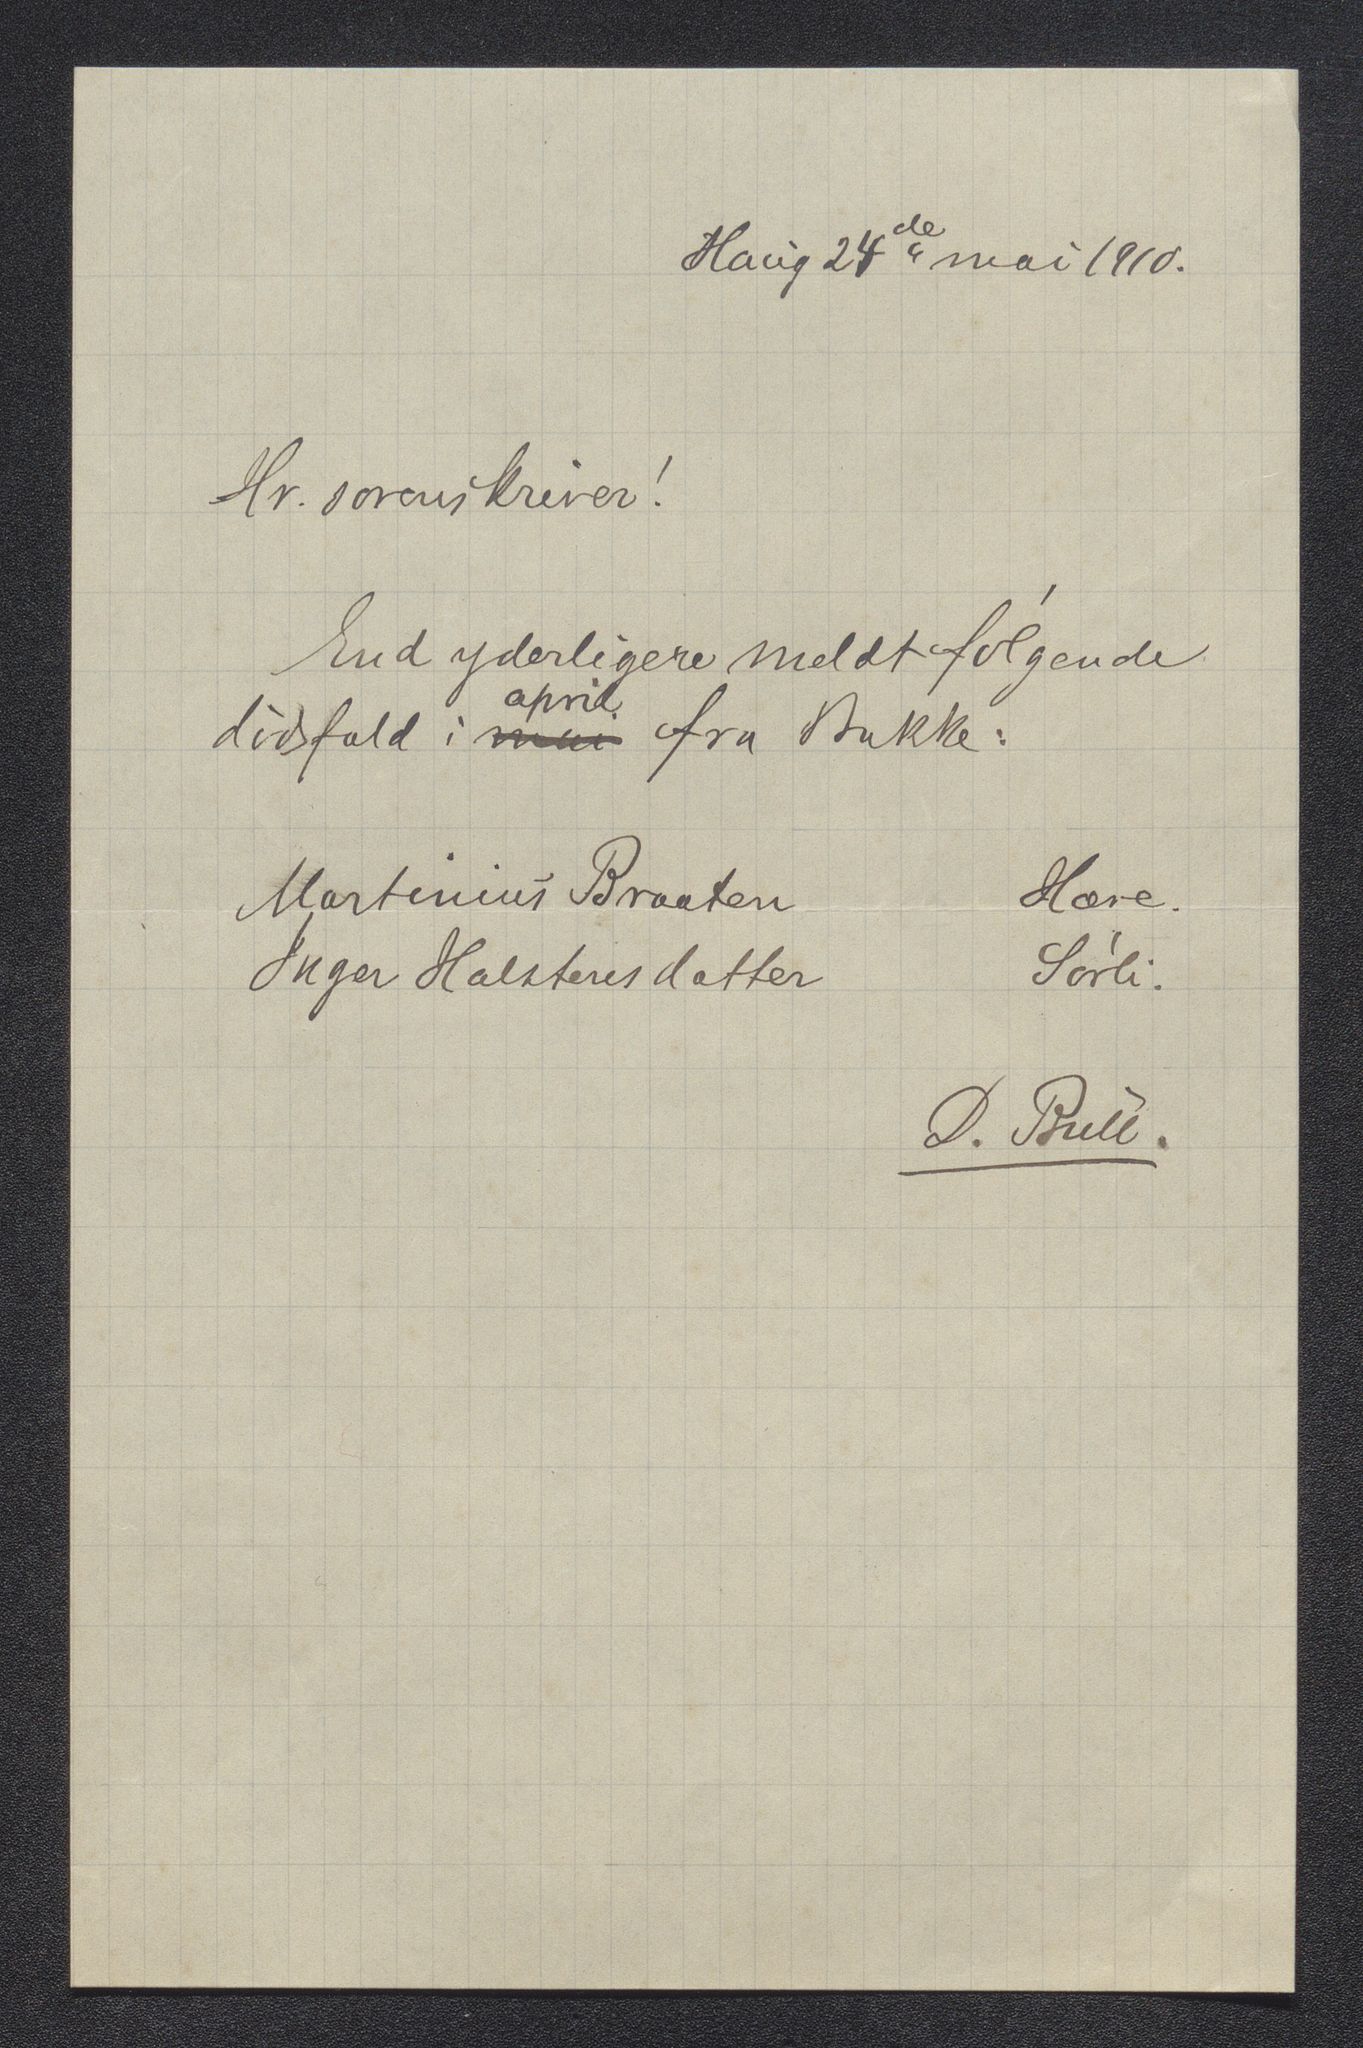 Haug 24de mai 1910.
Hr. sorenskriver!
End yderligere meldt følgende
april
dødsfald i mai fra Bakke:
Martinius Braaten Hære.
Inger Halstensdatter Sørli.
D. Bull.